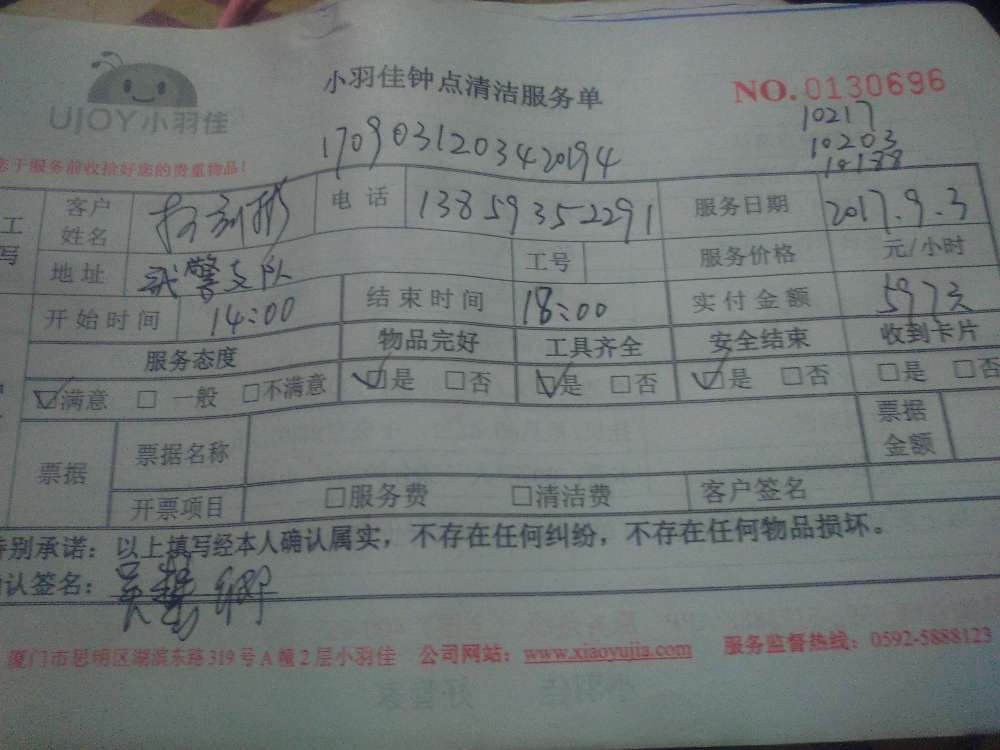 UJOY小羽佳
小羽佳钟点清洁服务单
NO.0130696
10217
10203
10188
1709031203420194
于服务前收拾好您的贵重物品!
工
写
客户姓名
电话 13859352291
服务日期 2017.9.3
地址 武警支队
工号
服务价格 元/小时
开始时间 14:00
结束时间 18:00
实付金额 597元
服务态度 物品完好 工具齐全 安全结束 收到卡片
满意 一般 不满意 是 否 是 否 是 否 是 否
票据 票据名称 票据金额
开票项目 服务费 清洁费 客户签名
特别承诺：以上填写经本人确认属实，不存在任何纠纷，不存在任何物品损坏。
认签名：
厦门市思明区湖滨东路319号A幢2层小羽佳 公司网站：www.xiaoyujia.com 服务监督热线：0592-5888123